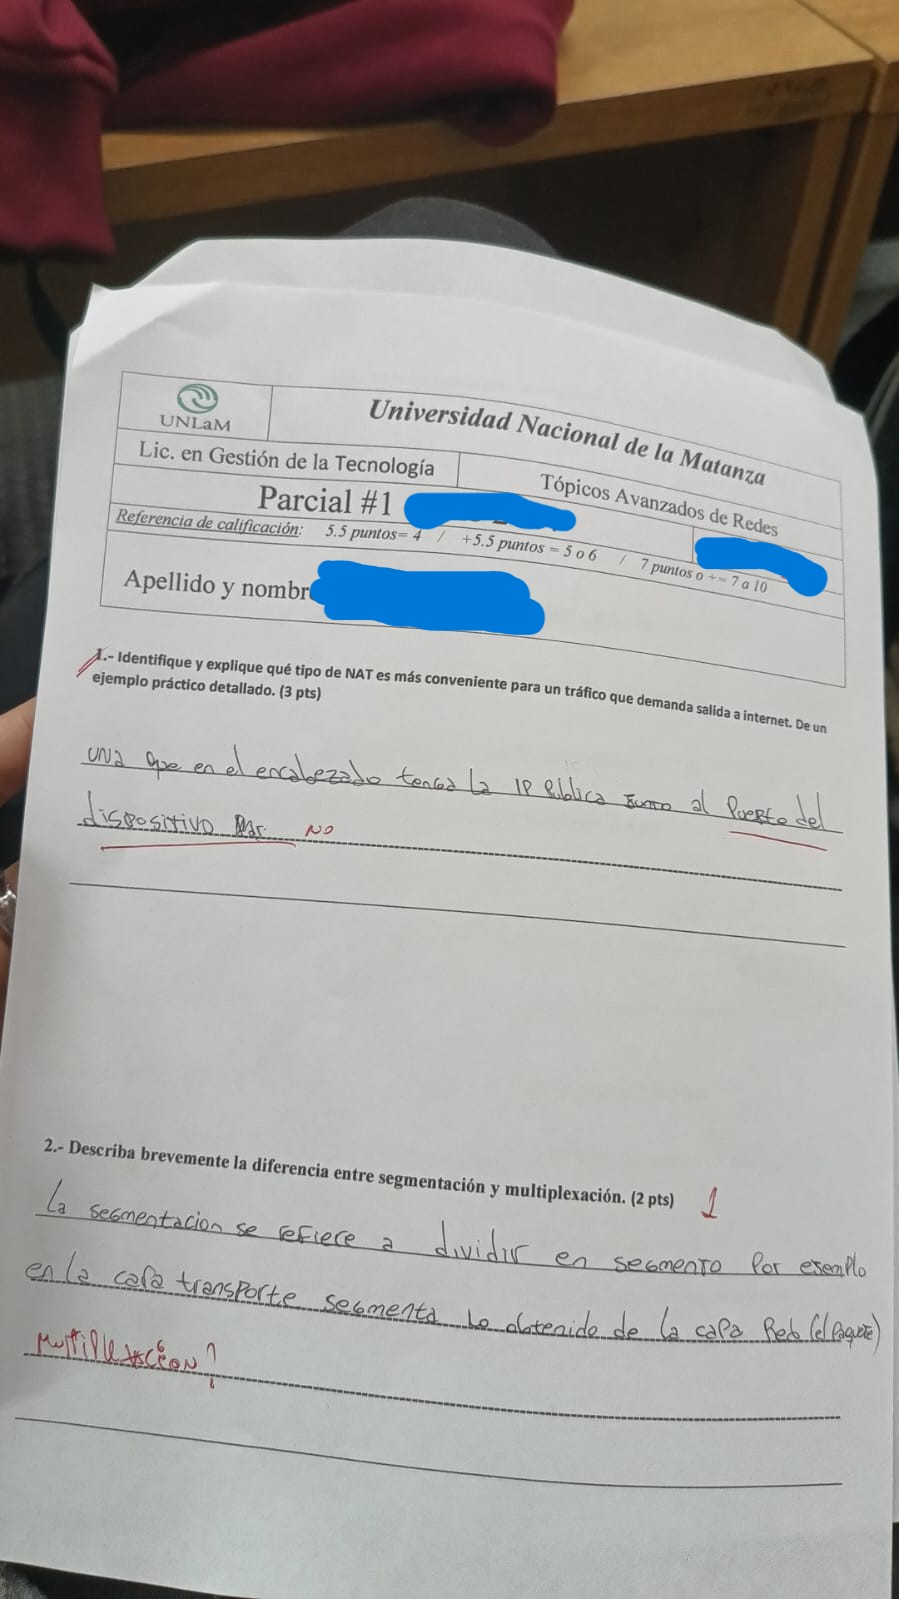 UNLaM
Universidad Nacional de la Matanza
Lic. en Gestión de la Tecnología
Tópicos Avanzados de Redes
Parcial #1
Referencia de calificación: 5.5 puntos= 4 / +5.5 puntos = 5 o 6 / 7 puntos o += 7 a 10
Apellido y nombr
1.- Identifique y explique qué tipo de NAT es más conveniente para un tráfico que demanda salida a internet. De un
ejemplo práctico detallado. (3 pts)
una que en el encabezado tenga la IP Publica junto al Puerto del
dispositivo NO
2.- Describa brevemente la diferencia entre segmentación y multiplexación. (2 pts) 1
La segmentacion se refiere a dividir en segmento por esemplo
en la capa transporte segmenta lo obtenido de la capa Red (el paquete)
Multiplexación?